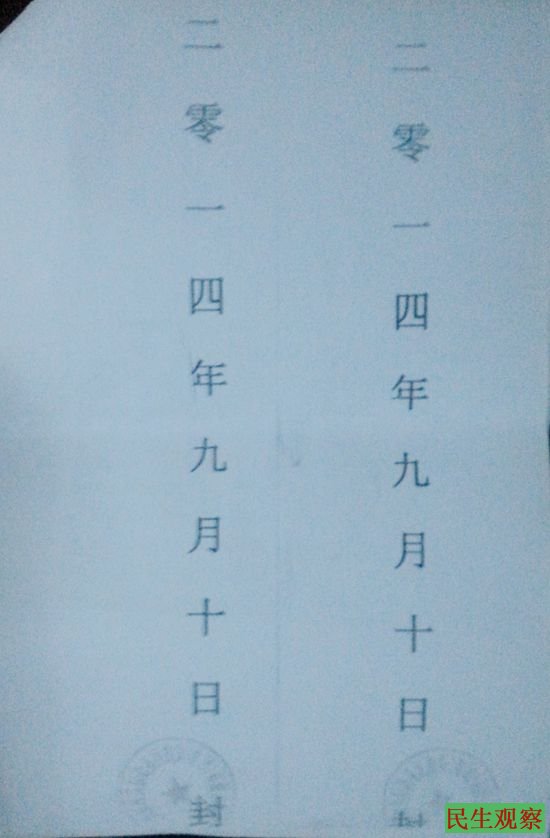 二零一四年九月十日封
二零一四年九月十日封
民生观察